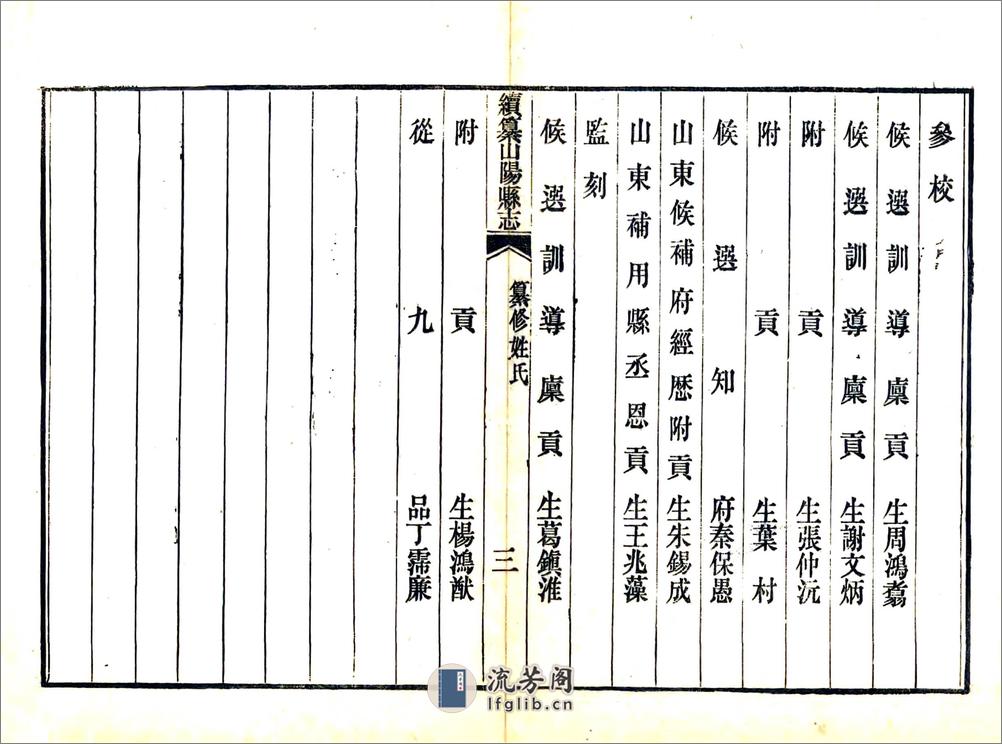 參校
候選訓導廩貢生周鴻翥
候選訓導廩貢生謝文炳
附貢生張仲沅
附貢生葉村
候選知府秦保愚
山東候補府經歷附貢生朱錫成
山東補用縣丞恩貢生王兆藻
監刻
續纂山陽縣志
纂修姓氏
三
候選訓導廩貢生葛鎮淮
附貢生楊鴻猷
從九品丁霈廉
流芳阁
lfglib.cn